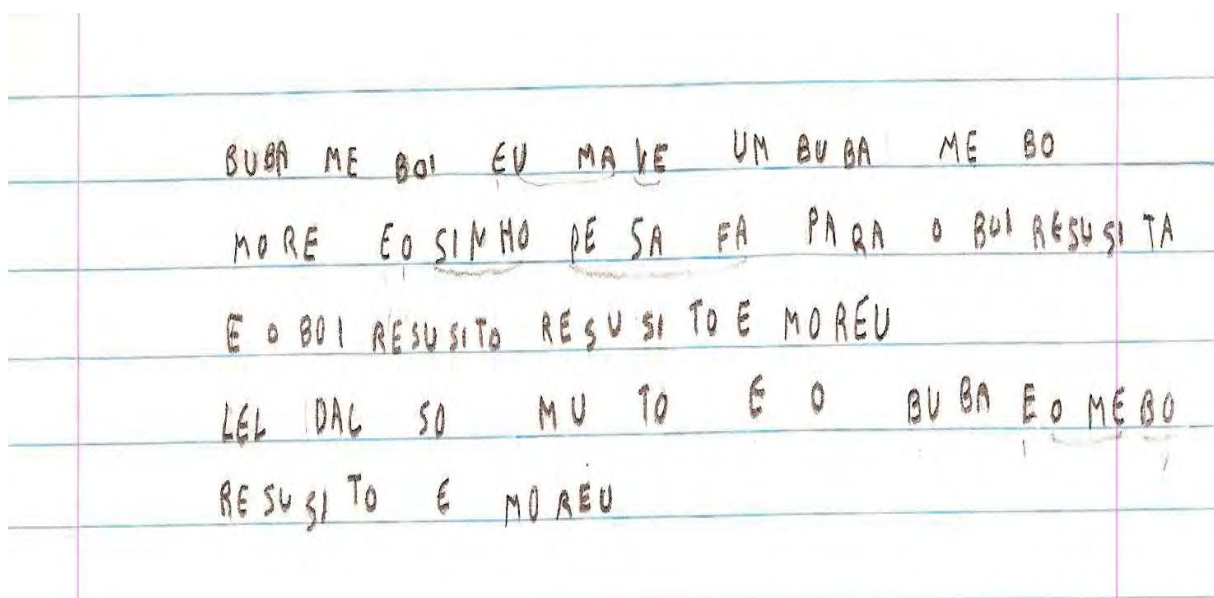 BUBA ME BOI EU MA VE UM BUBA ME BO
MORE EO SINHO PE SA FA PARA O BUI RESUSITA
E O BOI RESUSITO RESUSITO E MOREU
LEL DAL SO MU TO E O BUBA E O MEBO
RESUSITO E MOREU